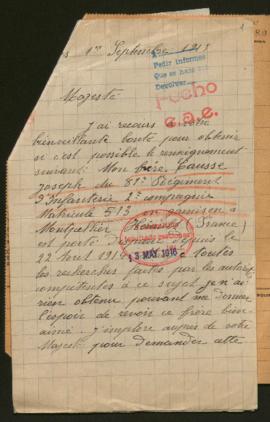 1er Septembre
Pedir informes
Que se haga
Devolver
Hecho
Majesté
J'ai recours à votre
bienveillante bonté pour obtenir
si c'est possible le renseignement
suivant: Mon frère Causse
Joseph du 81e Régiment
d'Infanterie 2e compagnie
Matricule 513 en garnison à
Montpellier Hérault (France)
est porté disparu depuis le
22 Aout 1914 toutes
les recherches faites par les autorités
compétentes à ce sujet je n'ai
rien obtenu pouvant me donner
l'espoir de revoir ce frère bien
aimé. J'implore auprès de votre
Majesté pour demander cette
13 MAY. 1916